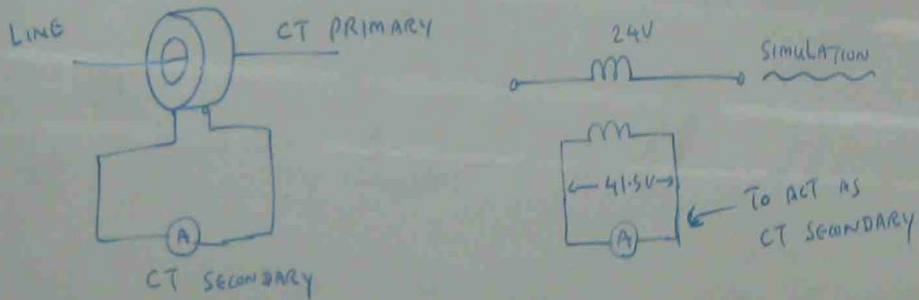 LINE
CT PRIMARY
A
CT SECONDARY
24V
SIMULATION
41.5V
A
TO ACT AS
CT SECONDARY